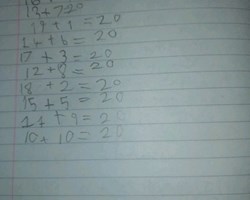 13+7=20
19 + 1 = 20
14 + 6 = 20
17 + 3 = 20
12 + 8 = 20
18 + 2 = 20
15 + 5 = 20
11 + 9 = 20
10 + 10 = 20